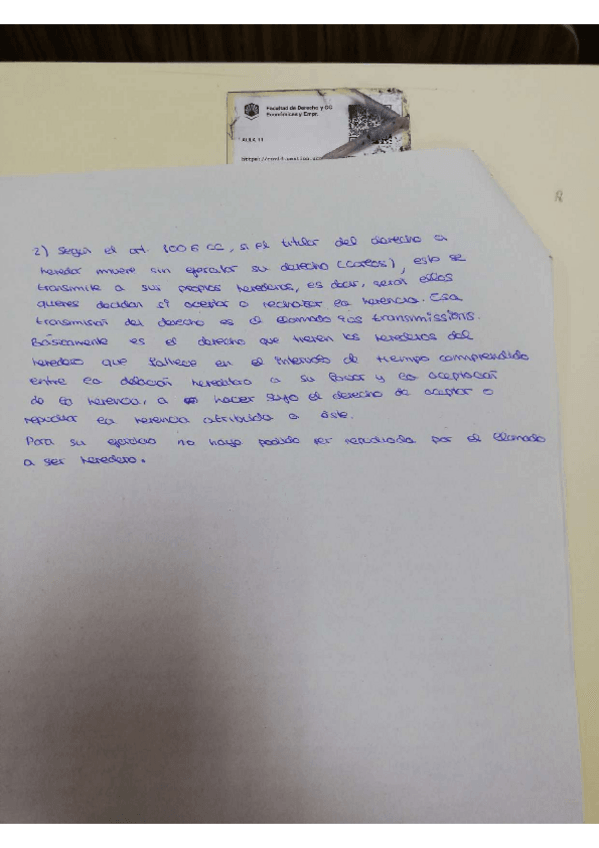 Facultad de Derecho y CC
Económicas y Empr.
AULA 11
2) Según el art. 1006 CC, si el titular del derecho a
heredar muere sin ejercitar su derecho, esto se
transmite a sus propios herederos, es decir, serán ellos
quienes decidan si aceptar o rechazar la herencia. Esa
transmisión del derecho es el llamado ius transmissionis.
Básicamente es el derecho que tienen los herederos del
heredero que fallece en el intervalo de tiempo comprendido
entre la delación hereditaria a su favor y la aceptación
de la herencia, a hacer suyo el derecho de aceptar o
repudiar la herencia atribuida a éste.
Para su ejercicio no haya podido ser repudiada por el llamado
a ser heredero.